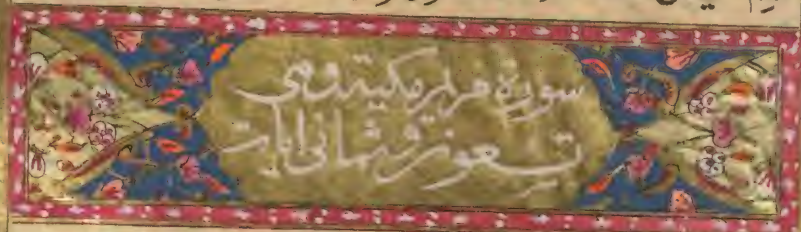 سورة مريم مكية وهي
تسعون وثماني ايات